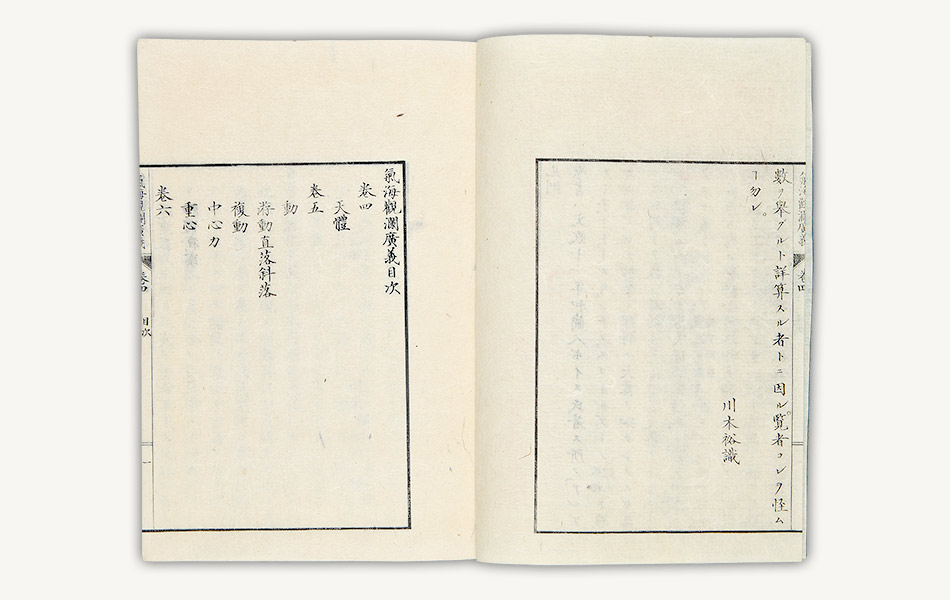 數ヲ擧グルト詳算スル者トニ因ル。覽者コレヲ怪ム
ヿ勿レ。
川本裕識
氣海觀瀾廣義
卷四
氣海觀瀾廣義目次
卷四
天體
卷五
動
游動直落斜落
複動
中心力
重心
卷六
氣海觀瀾廣義
卷四
目次
一